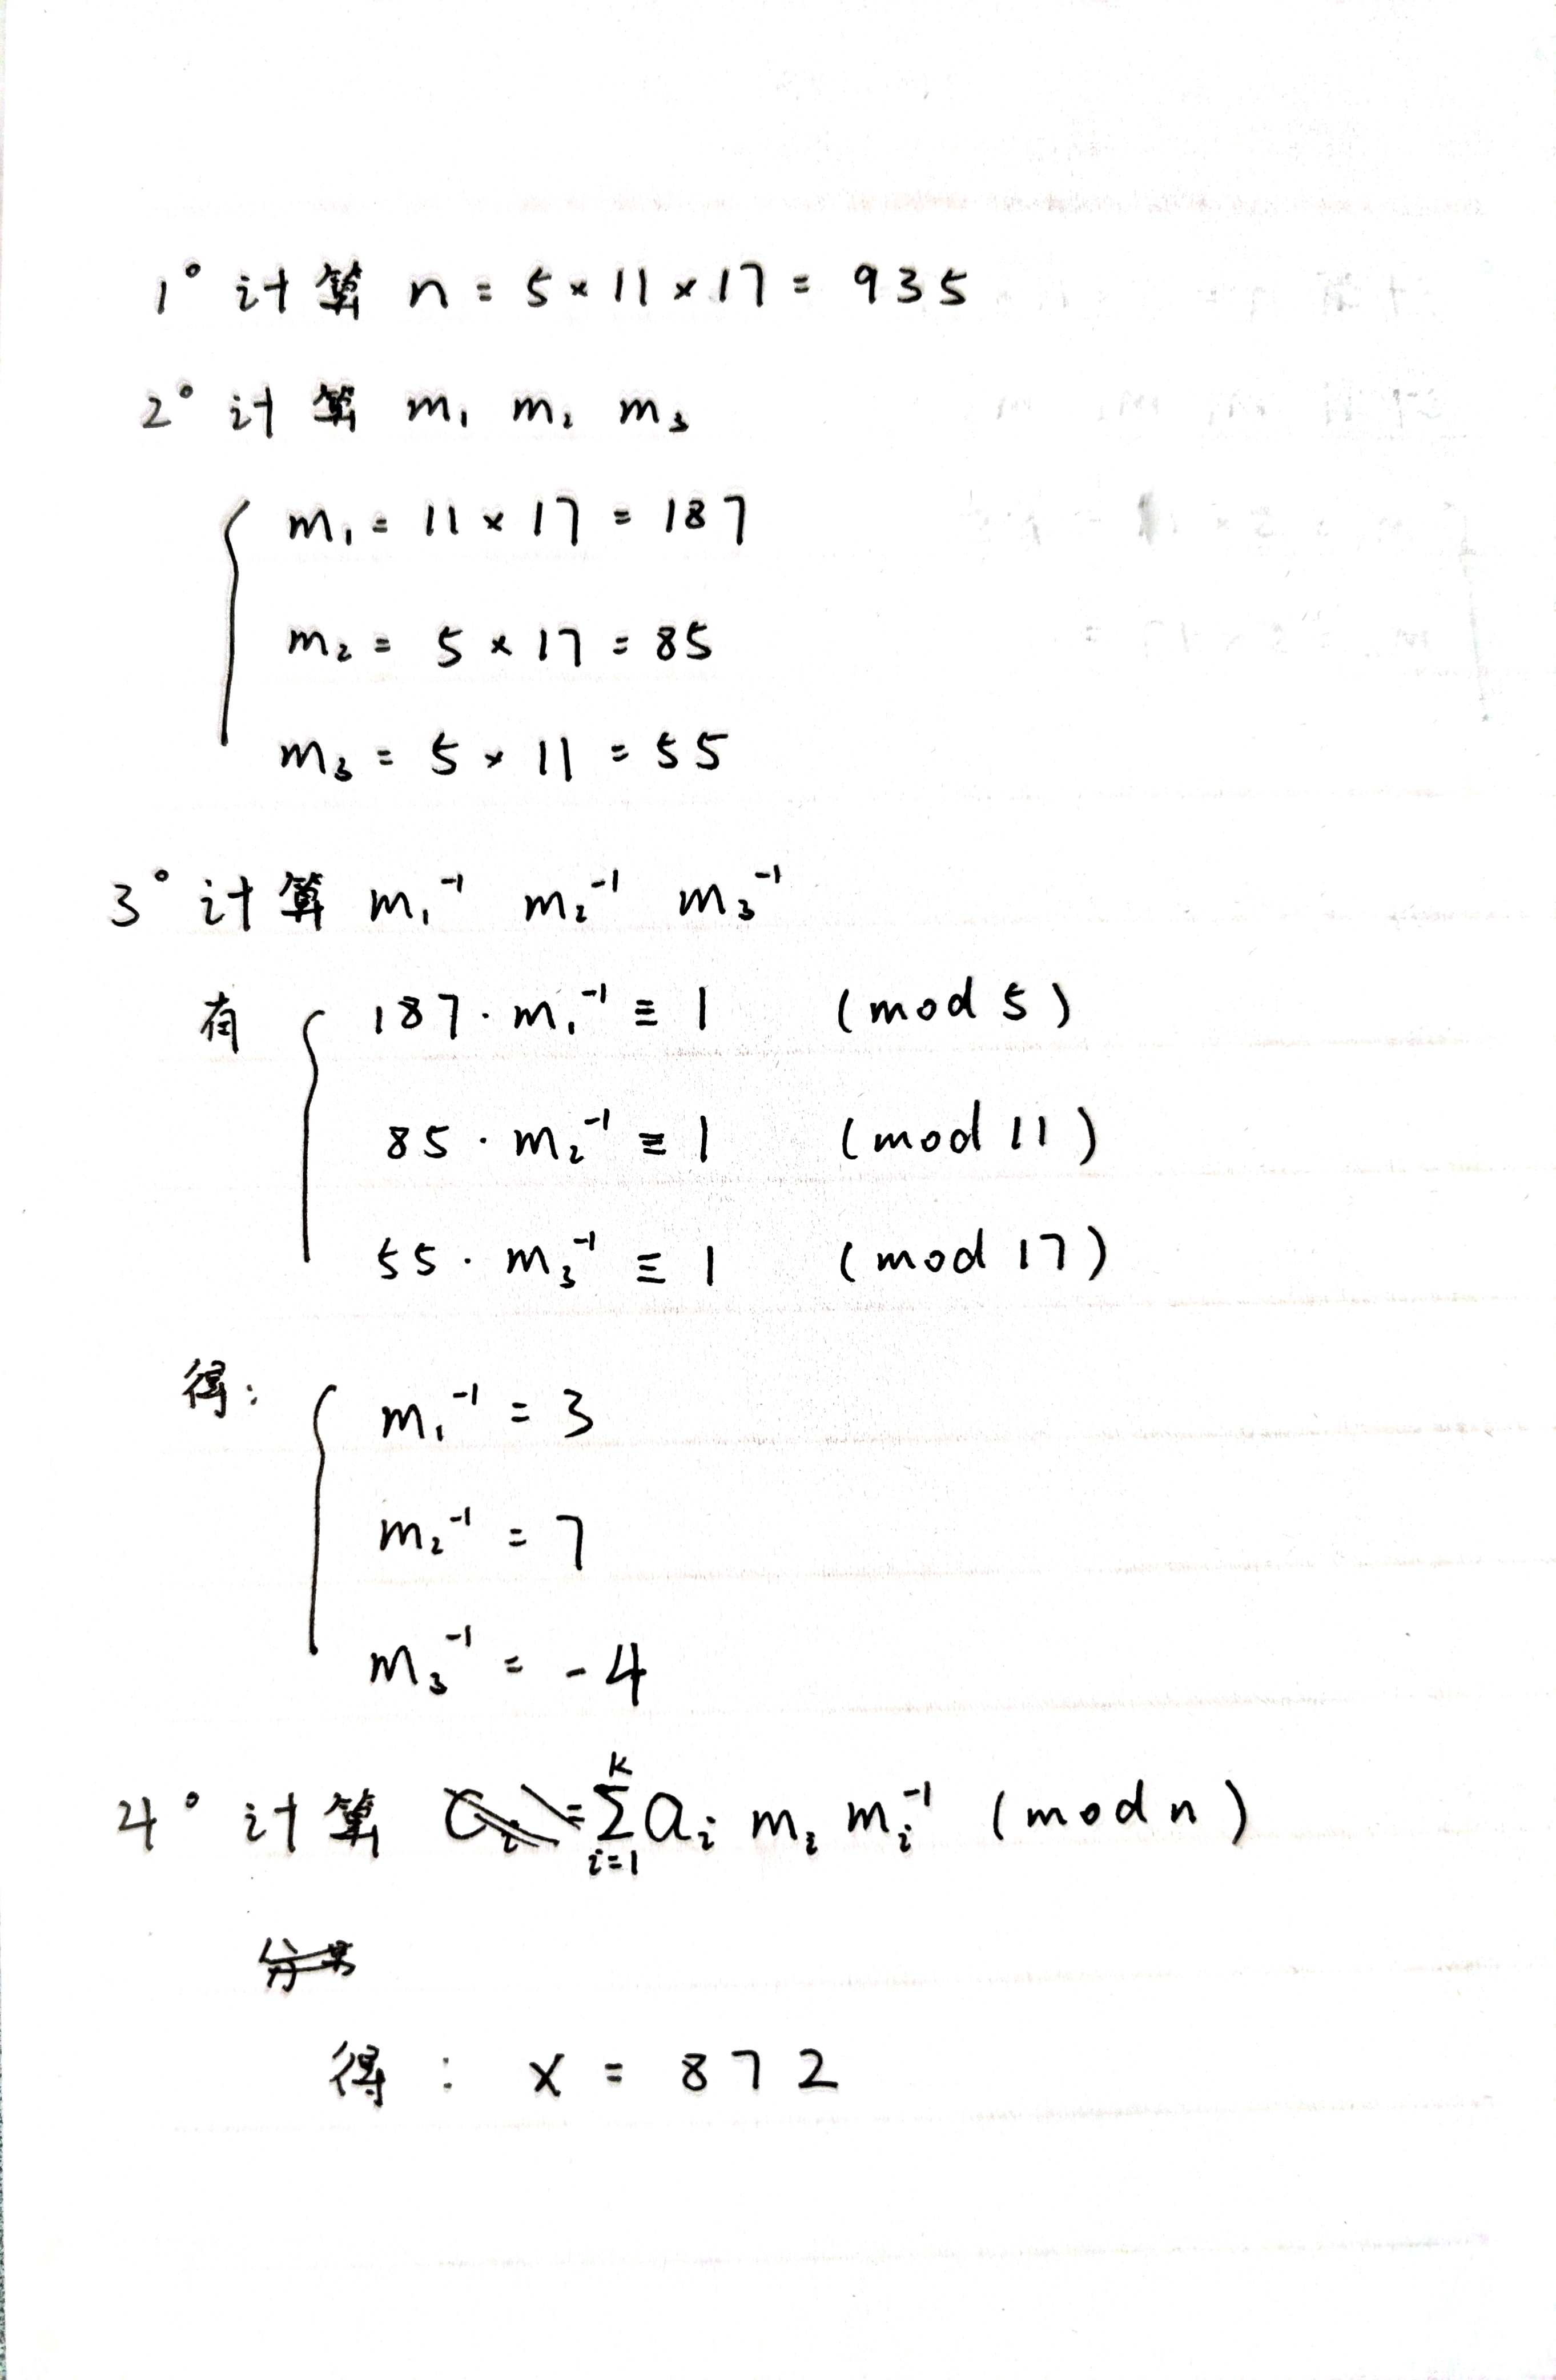 1° 计算 n = 5 × 11 × 17 = 935
2° 计算 m₁ m₂ m₃
m₁ = 11 × 17 = 187
m₂ = 5 × 17 = 85
m₃ = 5 × 11 = 55
3° 计算 m₁⁻¹ m₂⁻¹ m₃⁻¹
有 187 · m₁⁻¹ ≡ 1 (mod 5)
85 · m₂⁻¹ ≡ 1 (mod 11)
55 · m₃⁻¹ ≡ 1 (mod 17)
得: m₁⁻¹ = 3
m₂⁻¹ = 7
m₃⁻¹ = -4
4° 计算 ∑ᵢ₌₁ᵏ aᵢ mᵢ mᵢ⁻¹ (mod n)
得 : x = 872